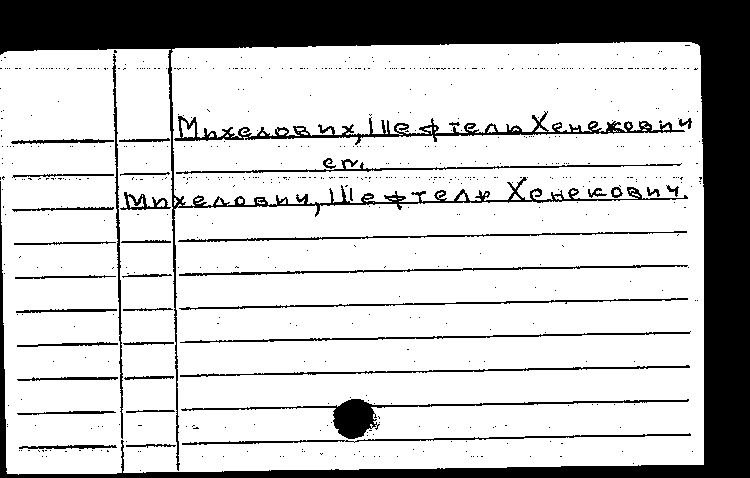 Михелових, Шефтель Хенекович
см.
Михелович, Шефтель Хенекович.